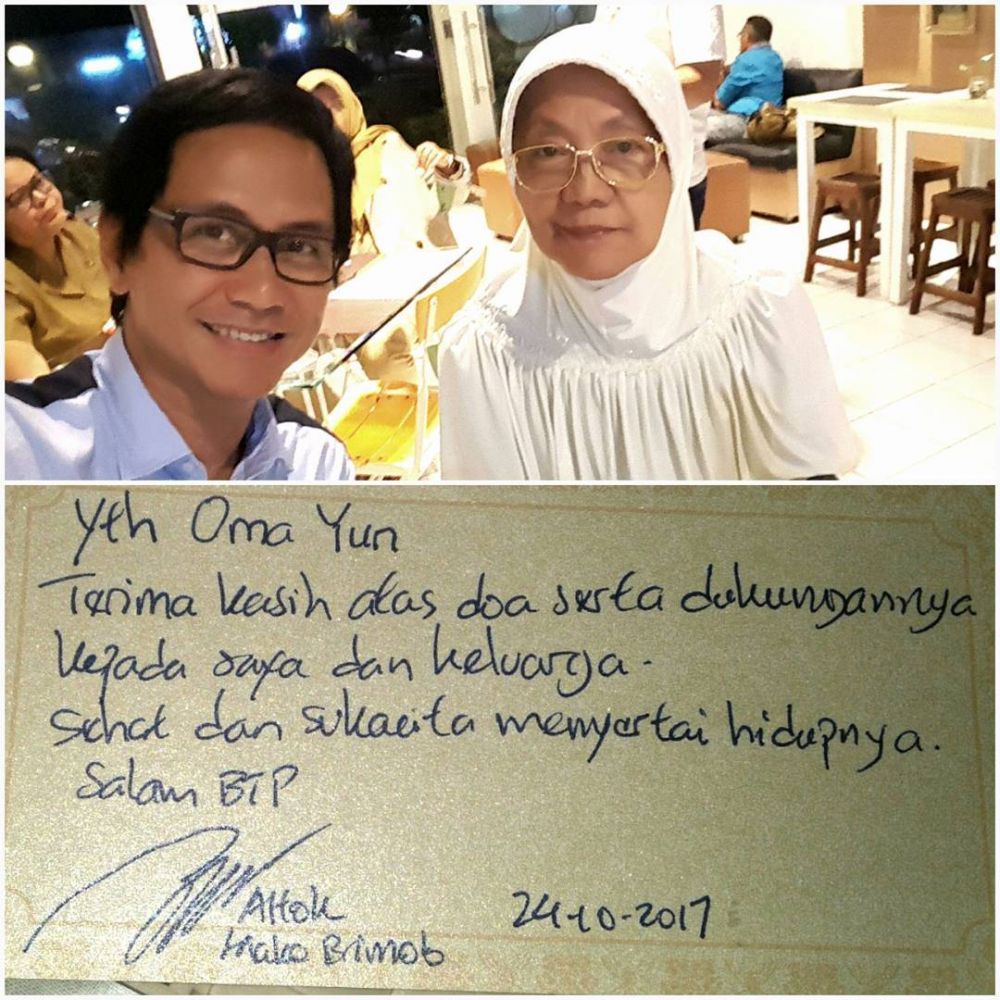 Yth Oma Yun
Terima kasih atas doa serta dukungannya
kepada saya dan keluarga.
Sehat dan sukacita menyertai hidupnya.
Salam BTP
Ahok
Mako Brimob
24-10-2017